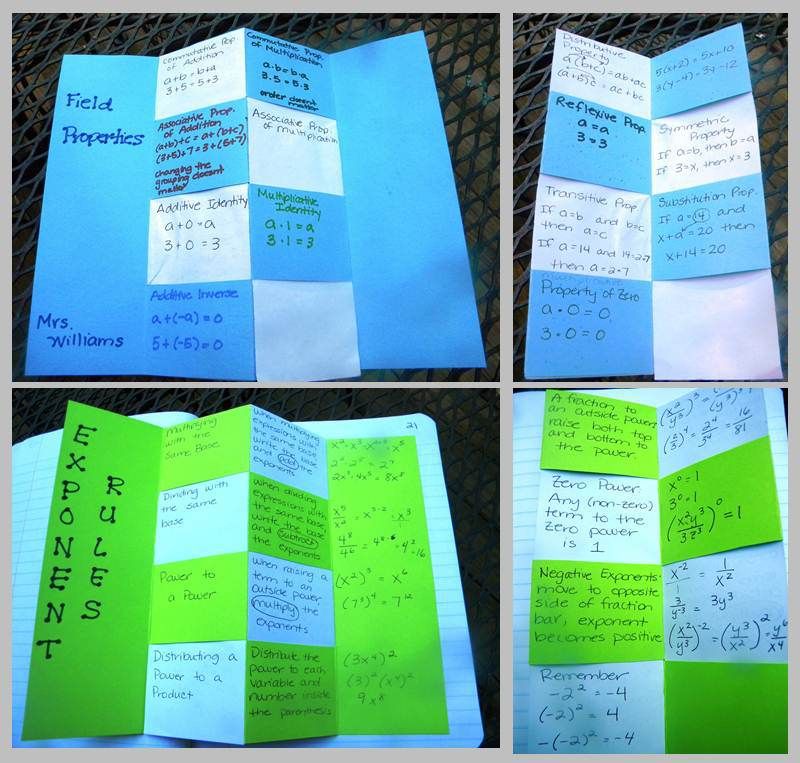 Field
Properties
Mrs.
Williams
Commutative Prop.
of Addition
a+b = b+a
3+5 = 5+3
Commutative Prop.
of Multiplication
a·b = b·a
3·5 = 5·3
order doesnt
matter
Associative Prop.
of Addition
(a+b)+c = a+(b+c)
(3+5)+7 = 3+(5+7)
changing the
grouping doesnt
matter
Associative Prop.
of multiplication
Additive Identity
a+0 = a
3+0 = 3
Multiplicative
Identity
a·1 = a
3·1 = 3
Additive Inverse
a+(-a) = 0
5+(-5) = 0
Distributive
Property
a(b+c) = ab+ac
(a+b)c = ac+bc
5(x+2) = 5x+10
3(y-4) = 3y-12
Reflexive Prop.
a = a
3 = 3
Symmetric
Property
If a=b, then b=a
If 3=x, then x=3
Transitive Prop.
If a=b and b=c
then a=c
If a=14 and 14=2·7
then a=2·7
Substitution Prop.
If a=14 and
x+a=20 then
x+14=20
Property of Zero
a·0 = 0
3·0 = 0
EXPONENT
RULES
Multiplying
with the
Same Base
When multiplying
expressions with
the same base
write the base
and add the
exponents
21
2x³·4x⁵ = 8x⁸
Dividing with
the same
base
When dividing
expressions with
the same base
write the base
and subtract
the exponents
Power to
a Power
When raising a
term to an
outside power
multiply the
exponents
(x²)³ = x⁶
(7³)⁴ = 7¹²
Distributing a
Power to a
Product
Distribute the
power to each
variable and
number inside
the parenthesis
(3x⁴)²
(3)²(x⁴)²
9x⁸
A fraction to
an outside power
raise both top
and bottom to
the power
(2/3)⁴ = 2⁴/3⁴ = 16/81
Zero Power
Any (non-zero)
term to the
zero power
is 1
x⁰ = 1
3⁰ = 1
(x²y³/3z³)⁰ = 1
Negative Exponents-
move to opposite
side of fraction
bar, exponent
becomes positive
x⁻²/1 = 1/x²
3/y⁻³ = 3y³
(x²/y³)⁻² = (y³/x²)² = y⁶/x⁴
Remember
-2² = -4
(-2)² = 4
-(-2)² = -4